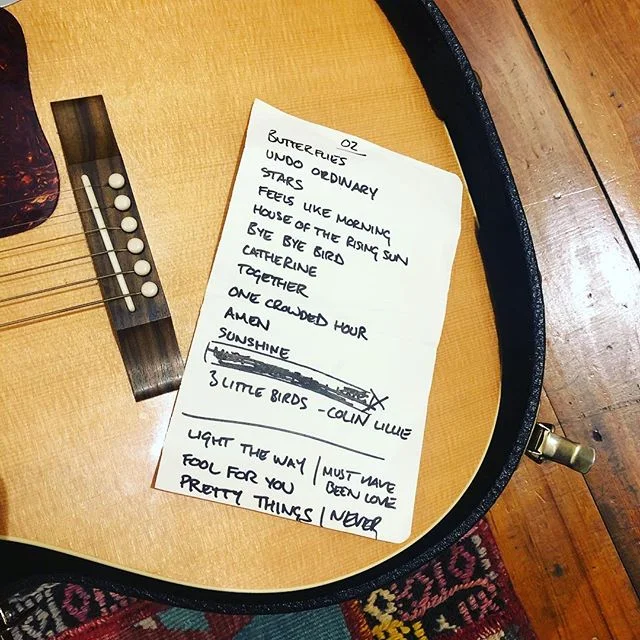 02
BUTTERFLIES
UNDO ORDINARY
STARS
FEELS LIKE MORNING
HOUSE OF THE RISING SUN
BYE BYE BIRD
CATHERINE
TOGETHER
ONE CROWDED HOUR
AMEN
SUNSHINE
3 LITTLE BIRDS - COLIN LILLIE
LIGHT THE WAY | MUST HAVE
BEEN LOVE
FOOL FOR YOU
PRETTY THINGS | NEVER